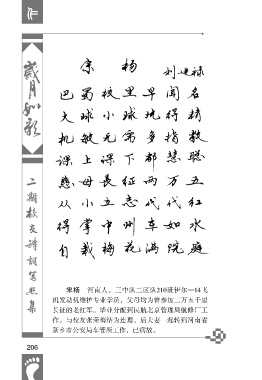 作
岁月如歌
二期校友诗词写照集
宋 杨
刘延禄
巴蜀校里早闻名
大球小球玩得精
机敏无需多指教
课上课下都慧聪
慈母长征两万五
从小立志代代红
得掌中州车如水
自栽梅花满院庭
宋杨 河南人，三中队二区队210班伊尔—14飞
机发动机维护专业学员，父母均为曾参加二万五千里
长征的老红军。毕业分配到民航北京管理局航修厂工
作，与校友张荣梅结为连理。后夫妻一起转到河南省
新乡市公安局车管所工作，已病故。
206